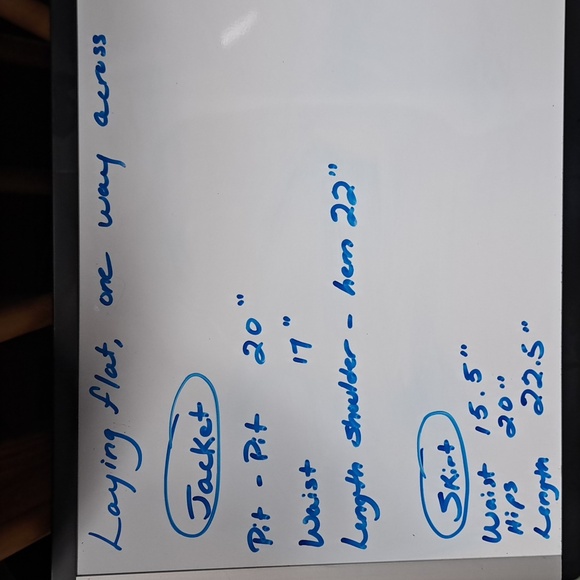 Laying flat, one way across
Jacket
Pit - Pit 20"
Waist 17"
Length shoulder - hem 22"
Skirt
Waist 15.5"
Hips 20"
Length 22.5"